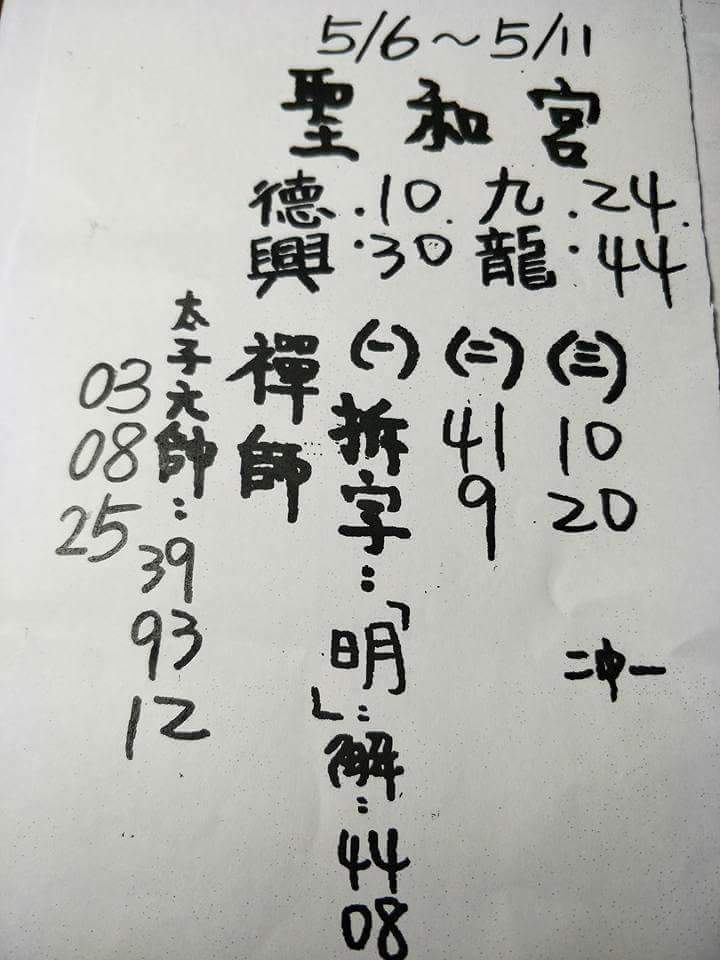 5/6～5/11
聖和宮
德興 .10. .30
九龍 .24. .44
禪師
(一) 拆字：「明」：解：44 08
(二) 41 9
(三) 10 20
二冲一
太子大帥：39 93 12
03
08
25